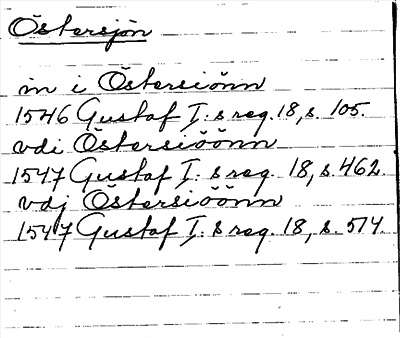 Östersjön
in i Östersiönn
1546 Gustaf I:s reg. 18, s. 105.
vdi Östersiöönn
1547 Gustaf I:s reg. 18, s. 462.
vdj Östersiöönn
1547 Gustaf I:s reg. 18, s. 514.